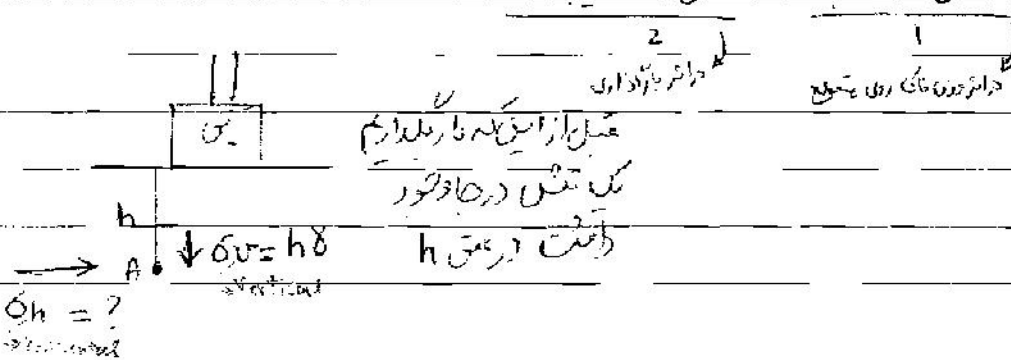 1
2
در اثر وزن خاک روی
در اثر بارگذاری
پی
قبل از این که بار بگذاریم
یک تنش در جا وجود
داشت در عمق h
h
A
σv = hγ
vertical
σh = ?
horizontal